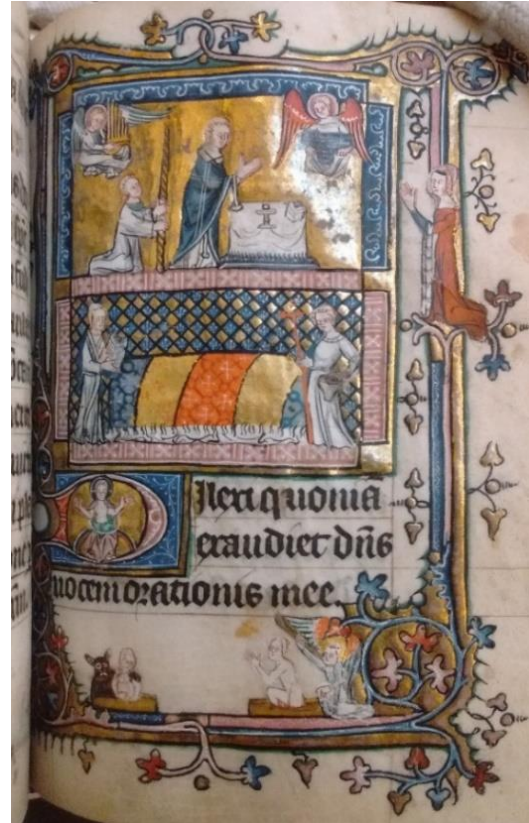 Dilexi quoniã
exaudiet dñs
uocem orationis mee.